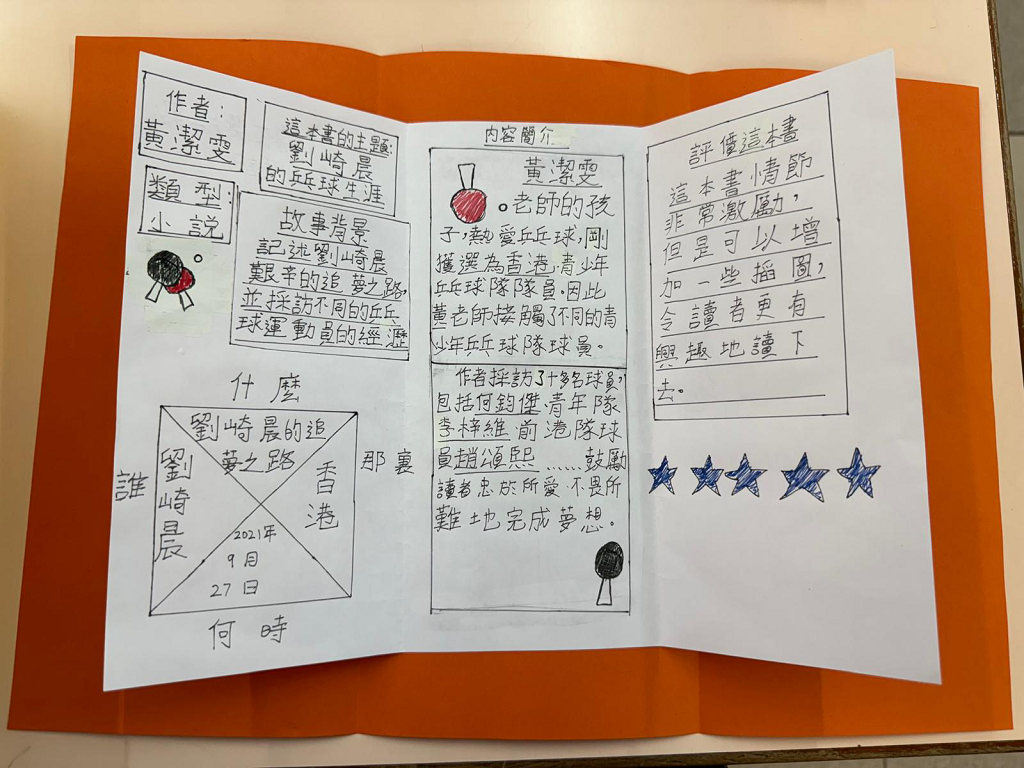 作者:
黃潔雯
類型:
小說
這本書的主題:
劉崎晨
的乒球生涯
故事背景
記述劉崎晨
艱辛的追夢之路,
並採訪不同的乒乓
球運動員的經歷
什麼
劉崎晨的追
夢之路
誰
劉崎晨
香港
那裏
2021年
9月
27日
何時
內容簡介
黃潔雯
老師的孩
子,熱愛乒乓球,剛
獲選為香港青少年
乒乓球隊隊員。因此
黃老師接觸了不同的青
少年乒乓球隊球員。
作者採訪了十多名球員,
包括何鈞傑、青年隊
李梓維、前港隊球
員趙頌熙......鼓勵
讀者忠於所愛、不畏所
難地完成夢想。
評價這本書
這本書情節
非常激勵,
但是可以增
加一些插圖,
令讀者更有
興趣地讀下
去。